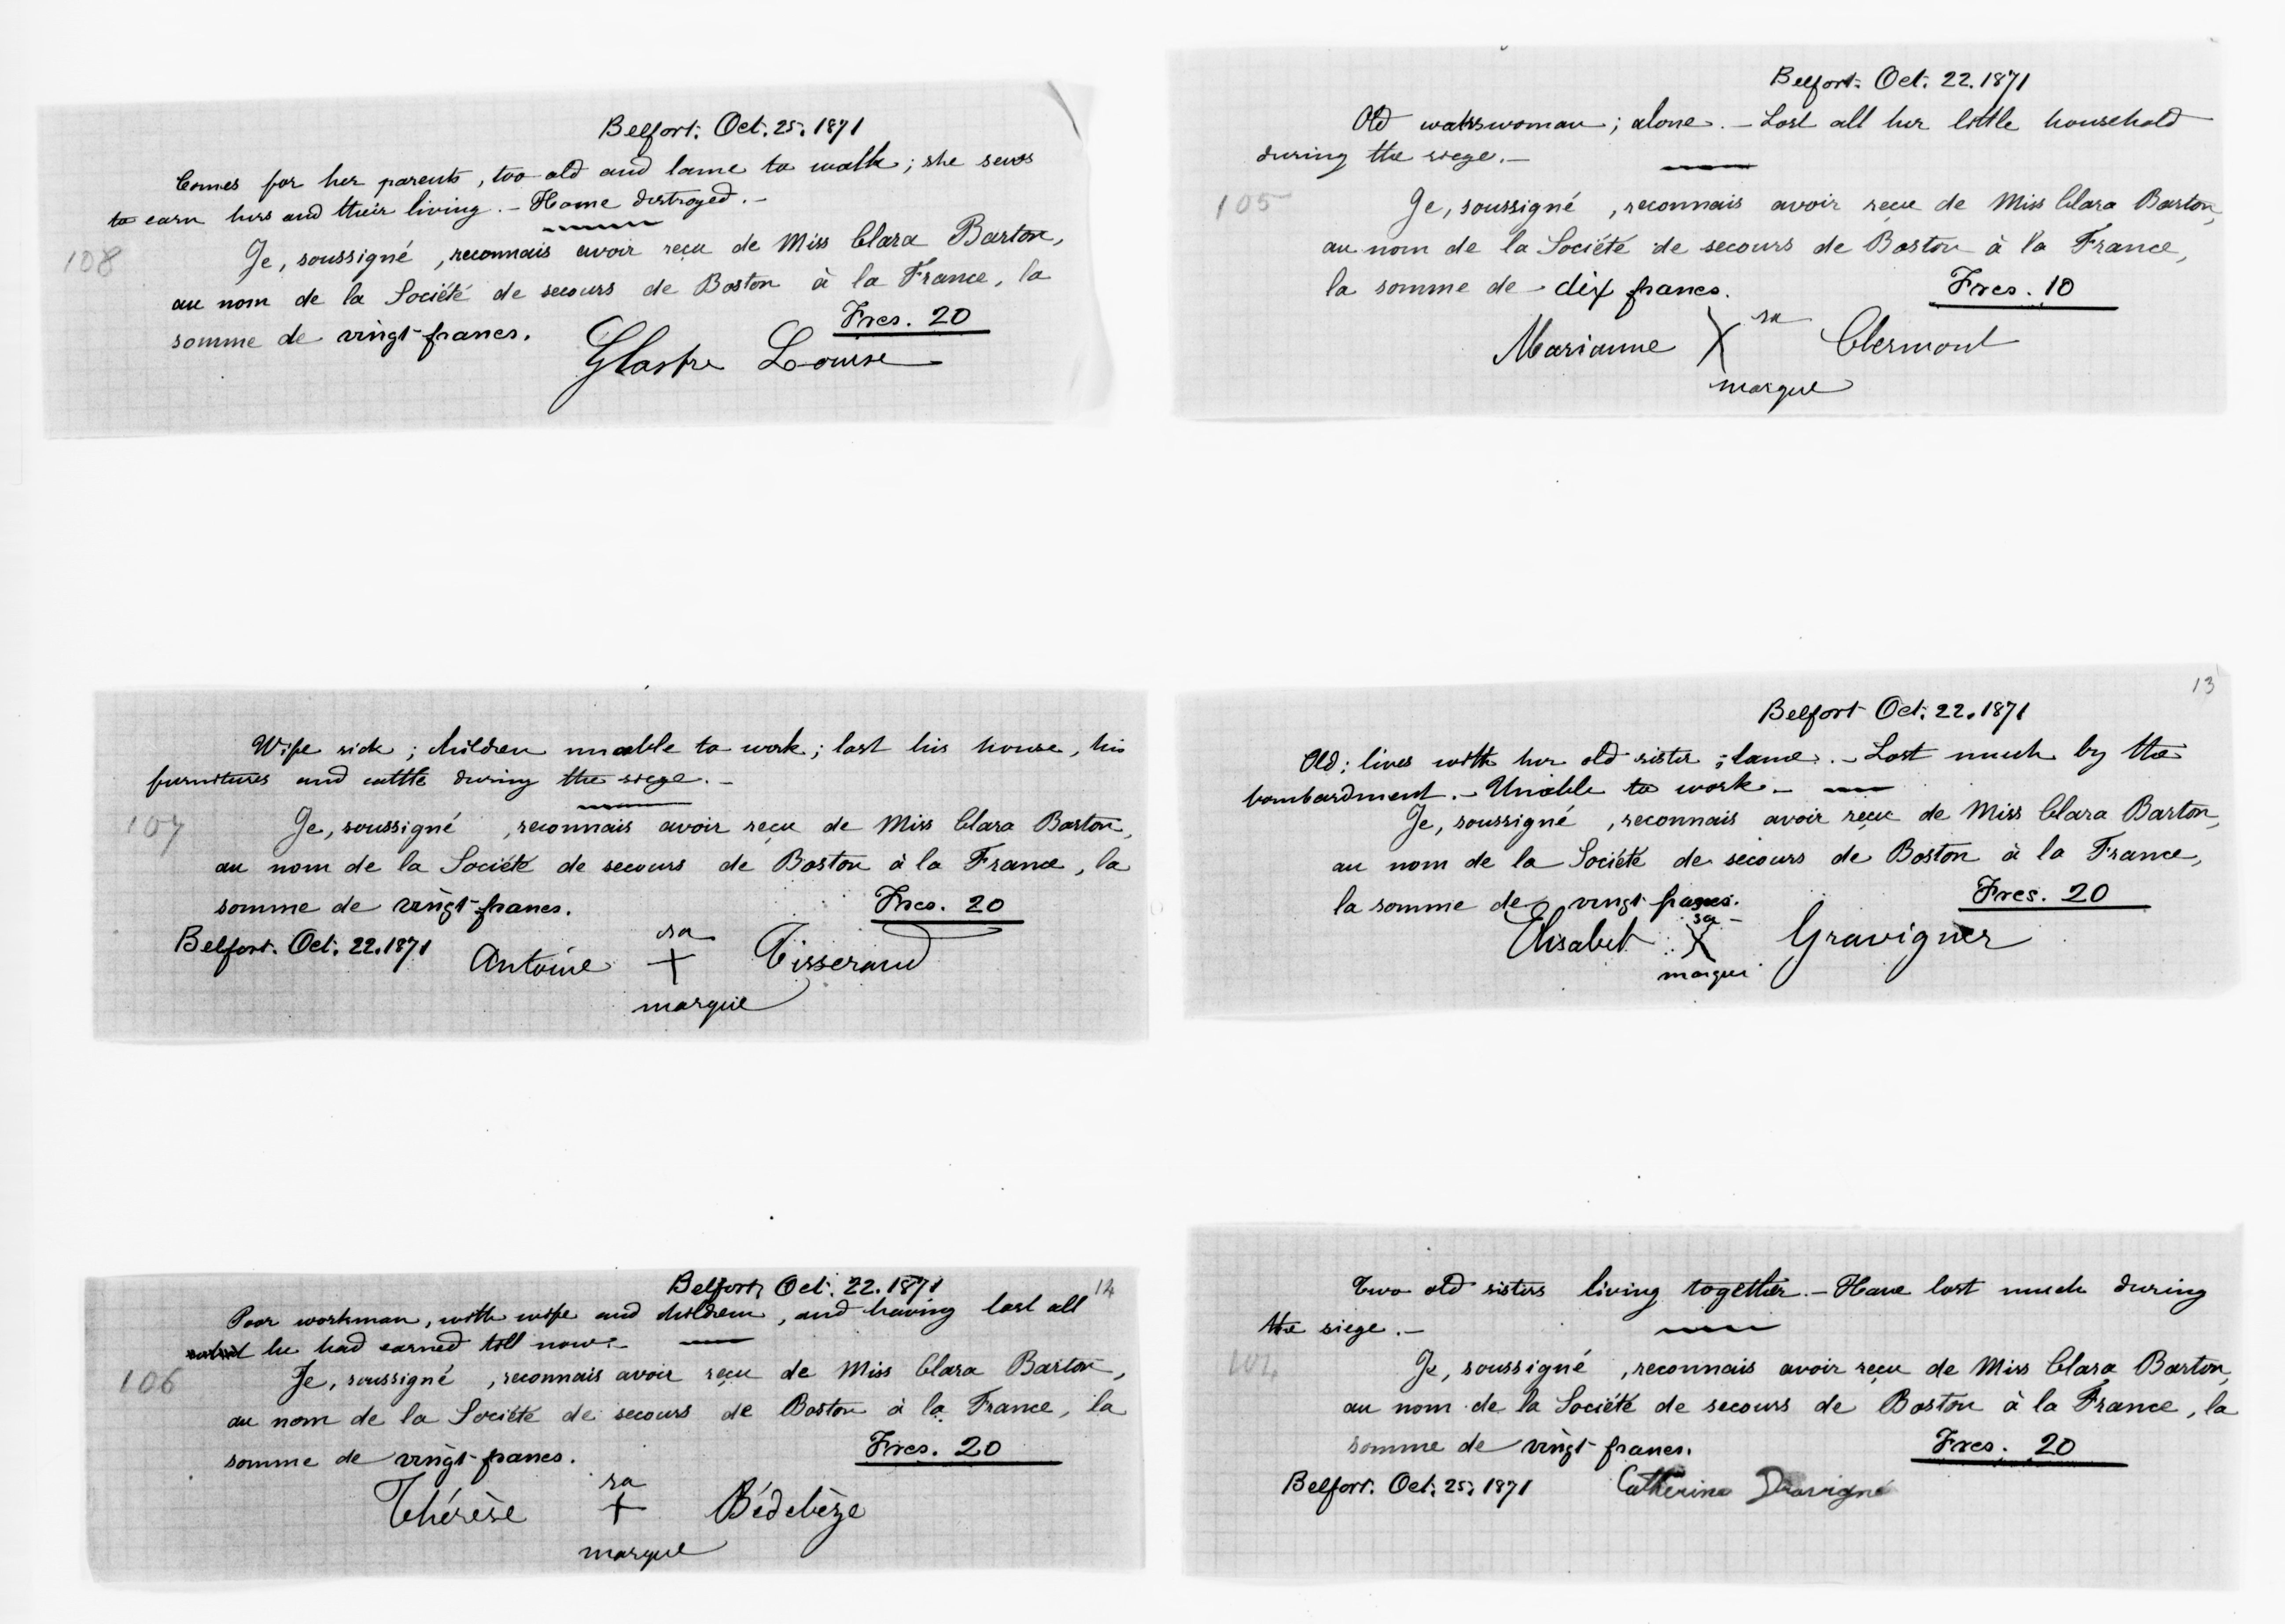 Belfort. Oct. 25. 1871
Comes for her parents, too old and lame to walk; she sews
to earn hers and their living. - Home destroyed. -
108
Je, soussigné, reconnais avoir reçu de Miss Clara Barton,
au nom de la Société de secours de Boston à la France, la
somme de vingt francs.
Frcs. 20
Louise
Wife sick; children unable to work; lost his house, his
furnitures and cattle during the siege. -
107
Je, soussigné, reconnais avoir reçu de Miss Clara Barton,
au nom de la Société de secours de Boston à la France, la
somme de vingt francs.
Frcs. 20
Belfort. Oct. 22. 1871
Antoine sa + Tisserand
marque
Belfort, Oct. 22. 1871
14
Poor workman, with wife and children, and having lost all
he had earned till now. -
106
Je, soussigné, reconnais avoir reçu de Miss Clara Barton,
au nom de la Société de secours de Boston à la France, la
somme de vingt francs.
Frcs. 20
Thérèse sa + Bédebèze
marque
Belfort. Oct. 22. 1871
Old waherswoman; alone. - Lost all her little household
during the siege. -
105
Je, soussigné, reconnais avoir reçu de Miss Clara Barton,
au nom de la Société de secours de Boston à la France,
la somme de dix francs.
Frcs. 10
Marianne sa X Clermont
marque
13
Belfort Oct. 22. 1871
Old; lives with her old sister; lame. - Lost much by the
bombardment. - Unable to work. -
Je, soussigné, reconnais avoir reçu de Miss Clara Barton,
au nom de la Société de secours de Boston à la France,
la somme de vingt francs.
Frcs. 20
Elisabet sa X Gravigner
marque
Two old sisters living together. - Have lost much during
the siege. -
104
Je, soussigné, reconnais avoir reçu de Miss Clara Barton,
au nom de la Société de secours de Boston à la France, la
somme de vingt francs.
Frcs. 20
Belfort. Oct. 25. 1871
Catherine